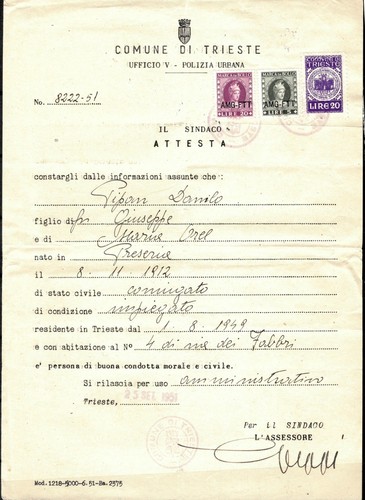 COMUNE DI TRIESTE
UFFICIO V - POLIZIA URBANA
MARCA DA BOLLO
AMG-FTT
LIRE 20
MARCA DA BOLLO
AMG-FTT
LIRE 5
COMUNE DI TRIESTE
LIRE 20
No. 8222-51
IL SINDACO
ATTESTA
constargli dalle informazioni assunte che :
Pipan Danilo
figlio di fu Giuseppe
e di Maria Orel
nato in Preserie
il 8. 11. 1912
di stato civile coniugato
di condizione impiegato
residente in Trieste dal 1. 8. 1949
e con abitazione al N° 4 di via dei Fabbri
e' persona di buona condotta morale e civile.
Si rilascia per uso amministrativo
Trieste, 25 SET. 1951
Per il SINDACO
L'ASSESSORE
Mod. 1218-5000-6.51-Rm. 2375